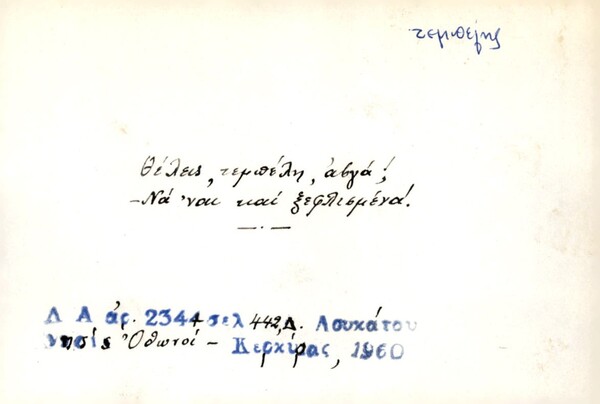 τεμπέλης
Θέλεις, τεμπέλη, ἀβγά;
-Νά 'ναι καί ξεφλισμένα!
Λ Α ἀρ. 2344 σελ 442, Δ. Λουκάτου
νησίς Ὀθωνοί - Κερκύρας, 1960